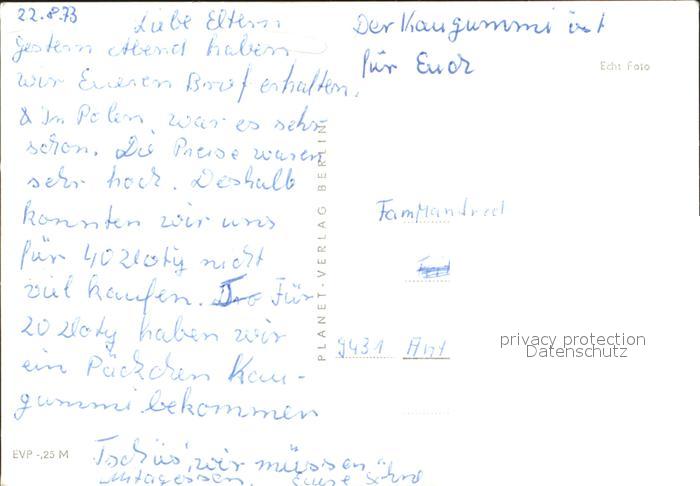 22.8.73
Liebe Eltern
gestern Abend haben
wir Eueren Brief erhalten.
In Polen war es sehr
schön. Die Preise waren
sehr hoch. Deshalb
konnten wir uns
für 40 zloty nicht
viel kaufen. Für
20 zloty haben wir
ein Päckchen Kau-
gummi bekommen
Tschüs, wir müssen
Mittagessen. Eure
Der Kaugummi ist
für Euch
Echt Foto
PLANET-VERLAG BERLIN
Fam Manfred
9431
privacy protection
Datenschutz
EVP -,25 M